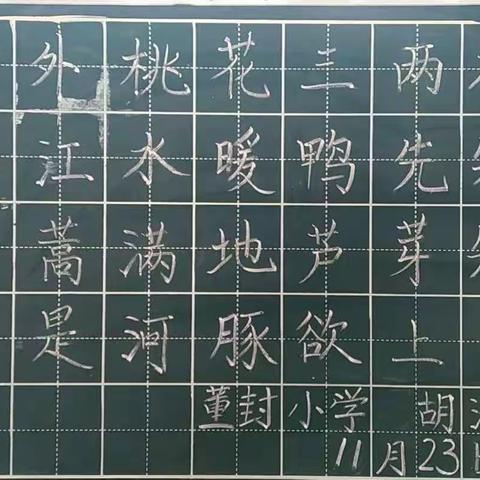 外桃花三两
江水暖鸭先
蒿满地芦芽
是河豚欲上
董封小学 胡
11月23